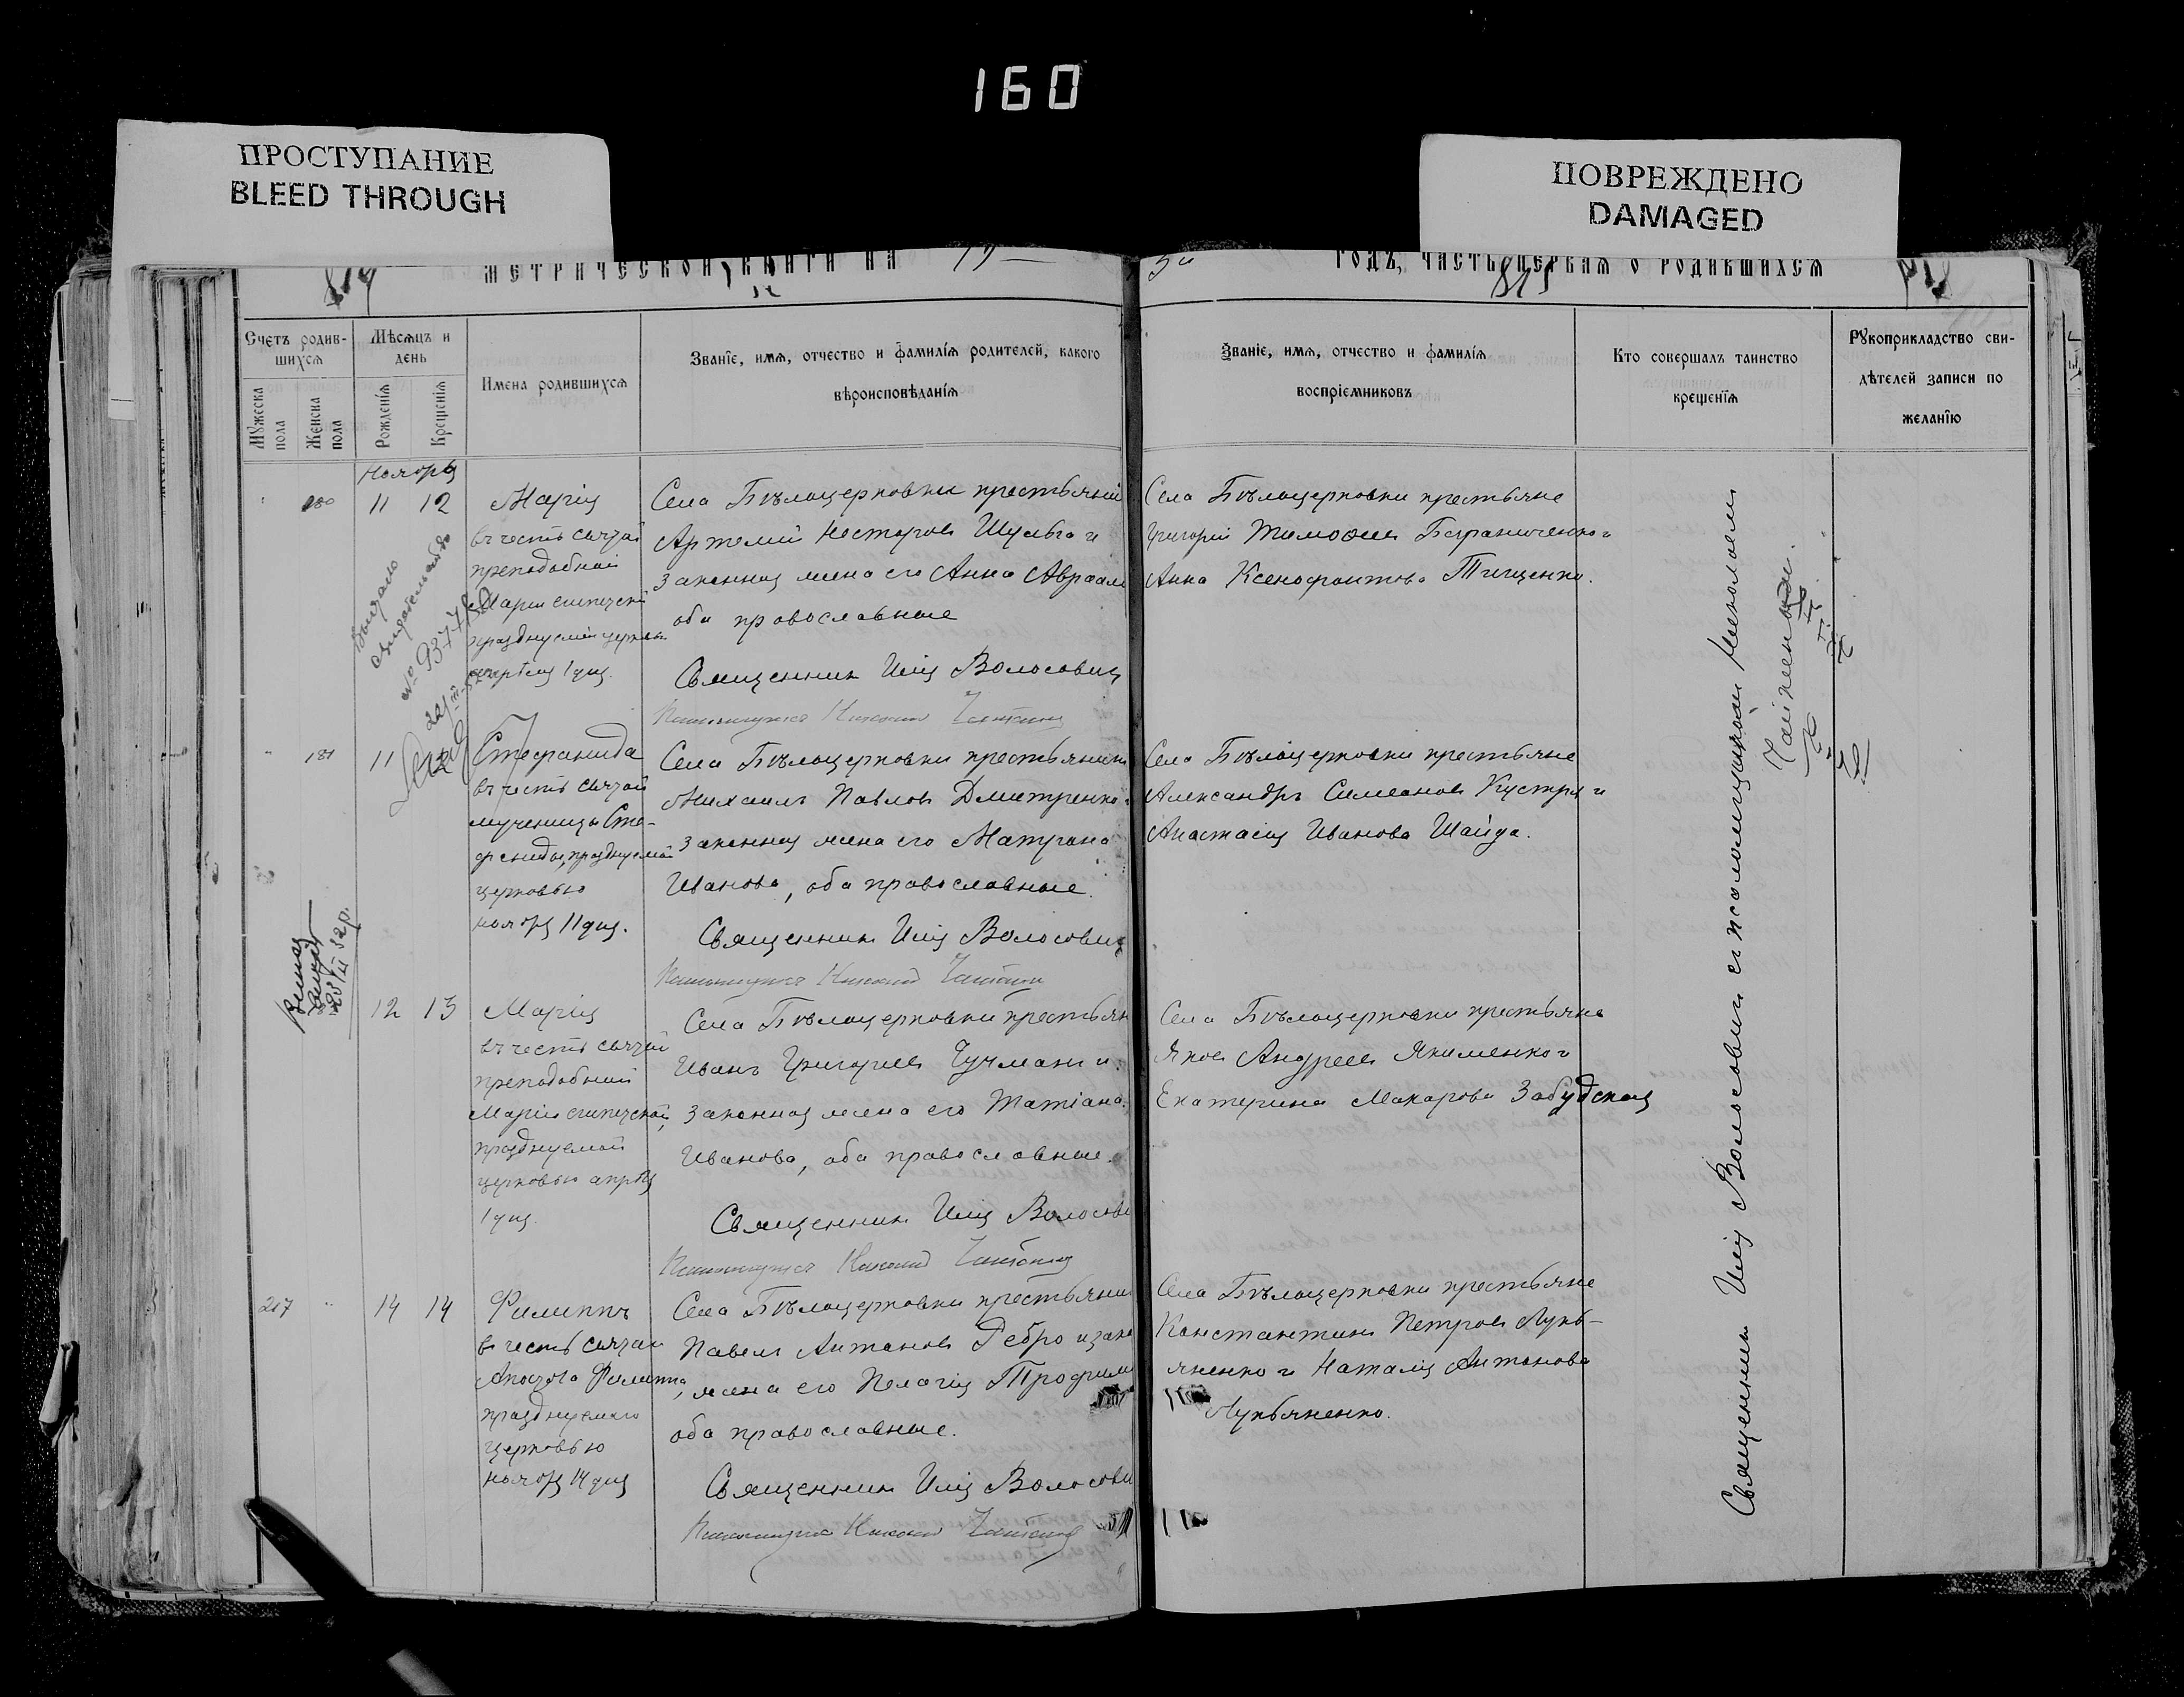 160
ПРОСТУПАНИЕ
BLEED THROUGH
ПОВРЕЖДЕНО
DAMAGED
МЕТРИЧЕСКОЙ КНИГИ НА
ГОДЪ, ЧАСТЬ ПЕРВАЯ О РОДИВШИХСЯ
Счетъ родив-
шихся
Мужеска пола
Женска пола
Мѣсяцъ и
день
Рожденія
Крещенія
Имена родившихся
Званіе, имя, отчество и фамилія родителей, какого
вѣроисповѣданія
Званіе, имя, отчество и фамилія
воспріемниковъ
Кто совершалъ таинство
крещенія
Рукоприкладство сви-
дѣтелей записи по
желанію
Ноября
180 11 12
Марія
въ честь святой
преподобной
Маріи египетской
празднуемой церковью
апрѣля 1 дня.
Села Бѣлоцерковки крестьянин
Артемий Несторов Шульга и
законная жена его Анна Авраам
оба православные
Священник Илия Волосович
Села Бѣлоцерковки крестьяне
Григорій Тимофеев и
Анна Ксенофонтова Тищенко.
№ 93774
181 11
Стефанида
въ честь святой
мученицы Сте-
фаниды, празднуемой
церковью
ноября 11 дня.
Села Бѣлоцерковки крестьянин
Михаилъ Павлов Дмитренко и
законная жена его Матрона
Иванова, оба православные.
Священник Илия Волосович
Села Бѣлоцерковки крестьяне
Александръ Симеонов Кустря и
Анастасия Иванова Шайда.
12 13
Марія
въ честь святой
преподобной
Маріи египетской,
празднуемой
церковью апрѣля
1 дня.
Села Бѣлоцерковки крестьян
Иванъ Григориев Гучман и
законная жена его Татіана
Иванова, оба православные.
Священник Илия Волосови
Села Бѣлоцерковки крестьяне
Яков Андреев Якименко и
Екатерина Макарова Забудская
217 14 14
Филиппъ
в честь святаго
Апостола Филиппа,
празднуемаго
церковью
ноября 14 дня
Села Бѣлоцерковки крестьянин
Павелъ Антонов Ребро и зако
жена его Пелагия Трофим
оба православные.
Священник Илия Волосови
Села Бѣлоцерковки крестьяне
Константин Петров Лукь-
яненко и Наталия Антонова
Лукьяненко.
Священник Илия Волосович с псаломщиком Николаем